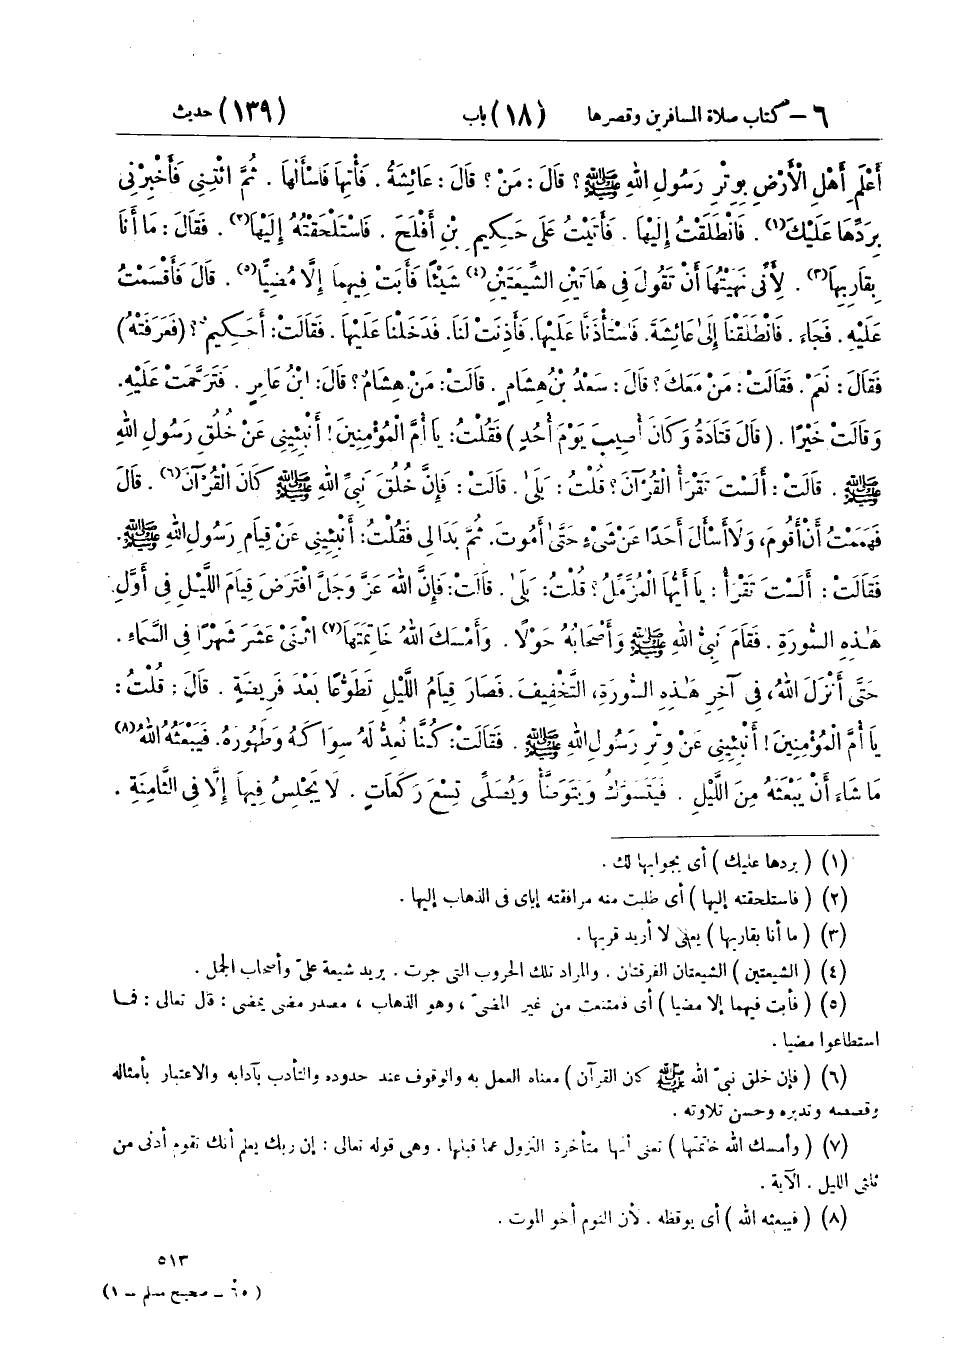 ٦ – كتاب صلاة المسافرين وقصرها (١٨) باب (١٣٩) حديث
أَعْلَمِ أَهْلِ الْأَرْضِ بِوِتْرِ رَسُولِ اللهِ ﷺ؟ قَالَ: مَنْ؟ قَالَ: عَائِشَةُ. فَأْتِهَا فَاسْأَلْهَا. ثُمَّ ائْتِنِي فَأَخْبِرْنِي
بِرَدِّهَا عَلَيْكَ(١). فَانْطَلَقْتُ إِلَيْهَا. فَأَتَيْتُ عَلَى حَكِيمِ بْنِ أَفْلَحَ. فَاسْتَلْحَقْتُهُ إِلَيْهَا(٢). فَقَالَ: مَا أَنَا
بِقَارِبِهَا(٣). لِأَنِّي نَهَيْتُهَا أَنْ تَقُولَ فِي هَاتَيْنِ الشِّيعَتَيْنِ(٤) شَيْئًا فَأَبَتْ فِيهِمَا إِلَّا مُضِيًّا(٥). قَالَ فَأَقْسَمْتُ
عَلَيْهِ. فَجَاءَ. فَانْطَلَقْنَا إِلَى عَائِشَةَ. فَاسْتَأْذَنَّا عَلَيْهَا. فَأَذِنَتْ لَنَا. فَدَخَلْنَا عَلَيْهَا. فَقَالَتْ: أَحَكِيمٌ؟ (فَعَرَفَتْهُ)
فَقَالَ: نَعَمْ. فَقَالَتْ: مَنْ مَعَكَ؟ قَالَ: سَعْدُ بْنُ هِشَامٍ. قَالَتْ: مَنْ هِشَامٌ؟ قَالَ: ابْنُ عَامِرٍ. فَتَرَحَّمَتْ عَلَيْهِ.
وَقَالَتْ خَيْرًا. (قَالَ قَتَادَةُ وَكَانَ أُصِيبَ يَوْمَ أُحُدٍ) فَقُلْتُ: يَا أُمَّ الْمُؤْمِنِينَ! أَنْبِئِينِي عَنْ خُلُقِ رَسُولِ اللهِ
ﷺ. قَالَتْ: أَلَسْتَ تَقْرَأُ الْقُرْآنَ؟ قُلْتُ: بَلَى. قَالَتْ: فَإِنَّ خُلُقَ نَبِيِّ اللهِ ﷺ كَانَ الْقُرْآنَ(٦). قَالَ
فَهَمَمْتُ أَنْ أَقُومَ، وَلَا أَسْأَلَ أَحَدًا عَنْ شَيْءٍ حَتَّى أَمُوتَ. ثُمَّ بَدَا لِي فَقُلْتُ: أَنْبِئِينِي عَنْ قِيَامِ رَسُولِ اللهِ ﷺ.
فَقَالَتْ: أَلَسْتَ تَقْرَأُ: يَا أَيُّهَا الْمُزَّمِّلُ؟ قُلْتُ: بَلَى. قَالَتْ: فَإِنَّ اللهَ عَزَّ وَجَلَّ افْتَرَضَ قِيَامَ اللَّيْلِ فِي أَوَّلِ
هَٰذِهِ السُّورَةِ. فَقَامَ نَبِيُّ اللهِ ﷺ وَأَصْحَابُهُ حَوْلًا. وَأَمْسَكَ اللهُ خَاتِمَتَهَا(٧) اثْنَيْ عَشَرَ شَهْرًا فِي السَّمَاءِ.
حَتَّى أَنْزَلَ اللهُ، فِي آخِرِ هَٰذِهِ السُّورَةِ، التَّخْفِيفَ. فَصَارَ قِيَامُ اللَّيْلِ تَطَوُّعًا بَعْدَ فَرِيضَةٍ. قَالَ: قُلْتُ:
يَا أُمَّ الْمُؤْمِنِينَ! أَنْبِئِينِي عَنْ وِتْرِ رَسُولِ اللهِ ﷺ. فَقَالَتْ: كُنَّا نُعِدُّ لَهُ سِوَاكَهُ وَطَهُورَهُ. فَيَبْعَثُهُ اللهُ(٨)
مَا شَاءَ أَنْ يَبْعَثَهُ مِنَ اللَّيْلِ. فَيَتَسَوَّكُ وَيَتَوَضَّأُ وَيُصَلِّي تِسْعَ رَكَعَاتٍ. لَا يَجْلِسُ فِيهَا إِلَّا فِي الثَّامِنَةِ.
(١) (بردها عليك) أى بجوابها لك.
(٢) (فاستلحقته إليها) أى طلبت منه مرافقته إياى فى الذهاب إليها.
(٣) (ما أنا بقاربها) يعنى لا أريد قربها.
(٤) (الشيعتين) الشيعتان الفرقتان. والمراد تلك الحروب التى جرت. يريد شيعة علىّ وأصحاب الجمل.
(٥) (فأبت فيهما إلا مضيا) أى فمتنعت من غير المضىّ، وهو الذهاب، مصدر مضى يمضى: قال تعالى: فما
استطاعوا مضيا.
(٦) (فإن خلق نبىّ الله ﷺ كان القرآن) معناه العمل به والوقوف عند حدوده والتأدب بآدابه والاعتبار بأمثاله
وقصصه وتدبره وحسن تلاوته.
(٧) (وأمسك الله خاتمتها) تعنى أنها متأخرة النزول عما قبلها. وهى قوله تعالى: إن ربك يعلم أنك تقوم أدنى من
ثلثى الليل. الآية.
(٨) (فيبعثه الله) أى يوقظه. لأن النوم أخو الموت.
٥١٣
(٦٥ – صحيح مسلم – ١)